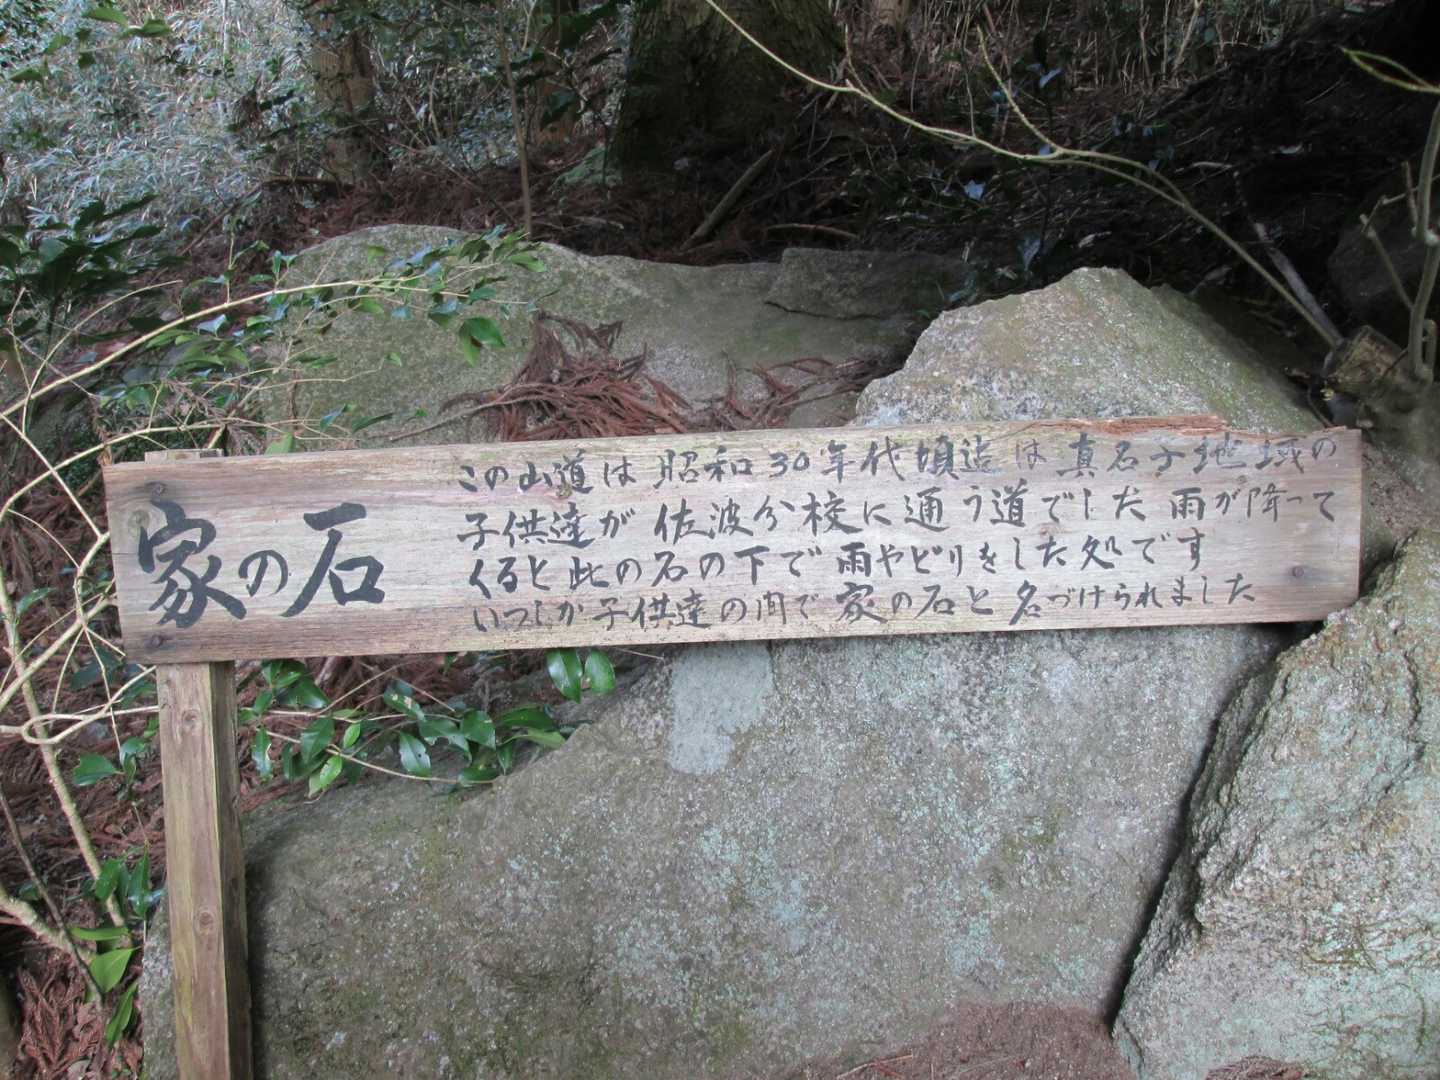 家の石
この山道は 昭和30年代頃迄は 真名子地域の
子供達が 佐波分校に通う道でした 雨が降って
くると 此の石の下で 雨やどりをした処です
いつしか子供達の間で 家の石と 名づけられました